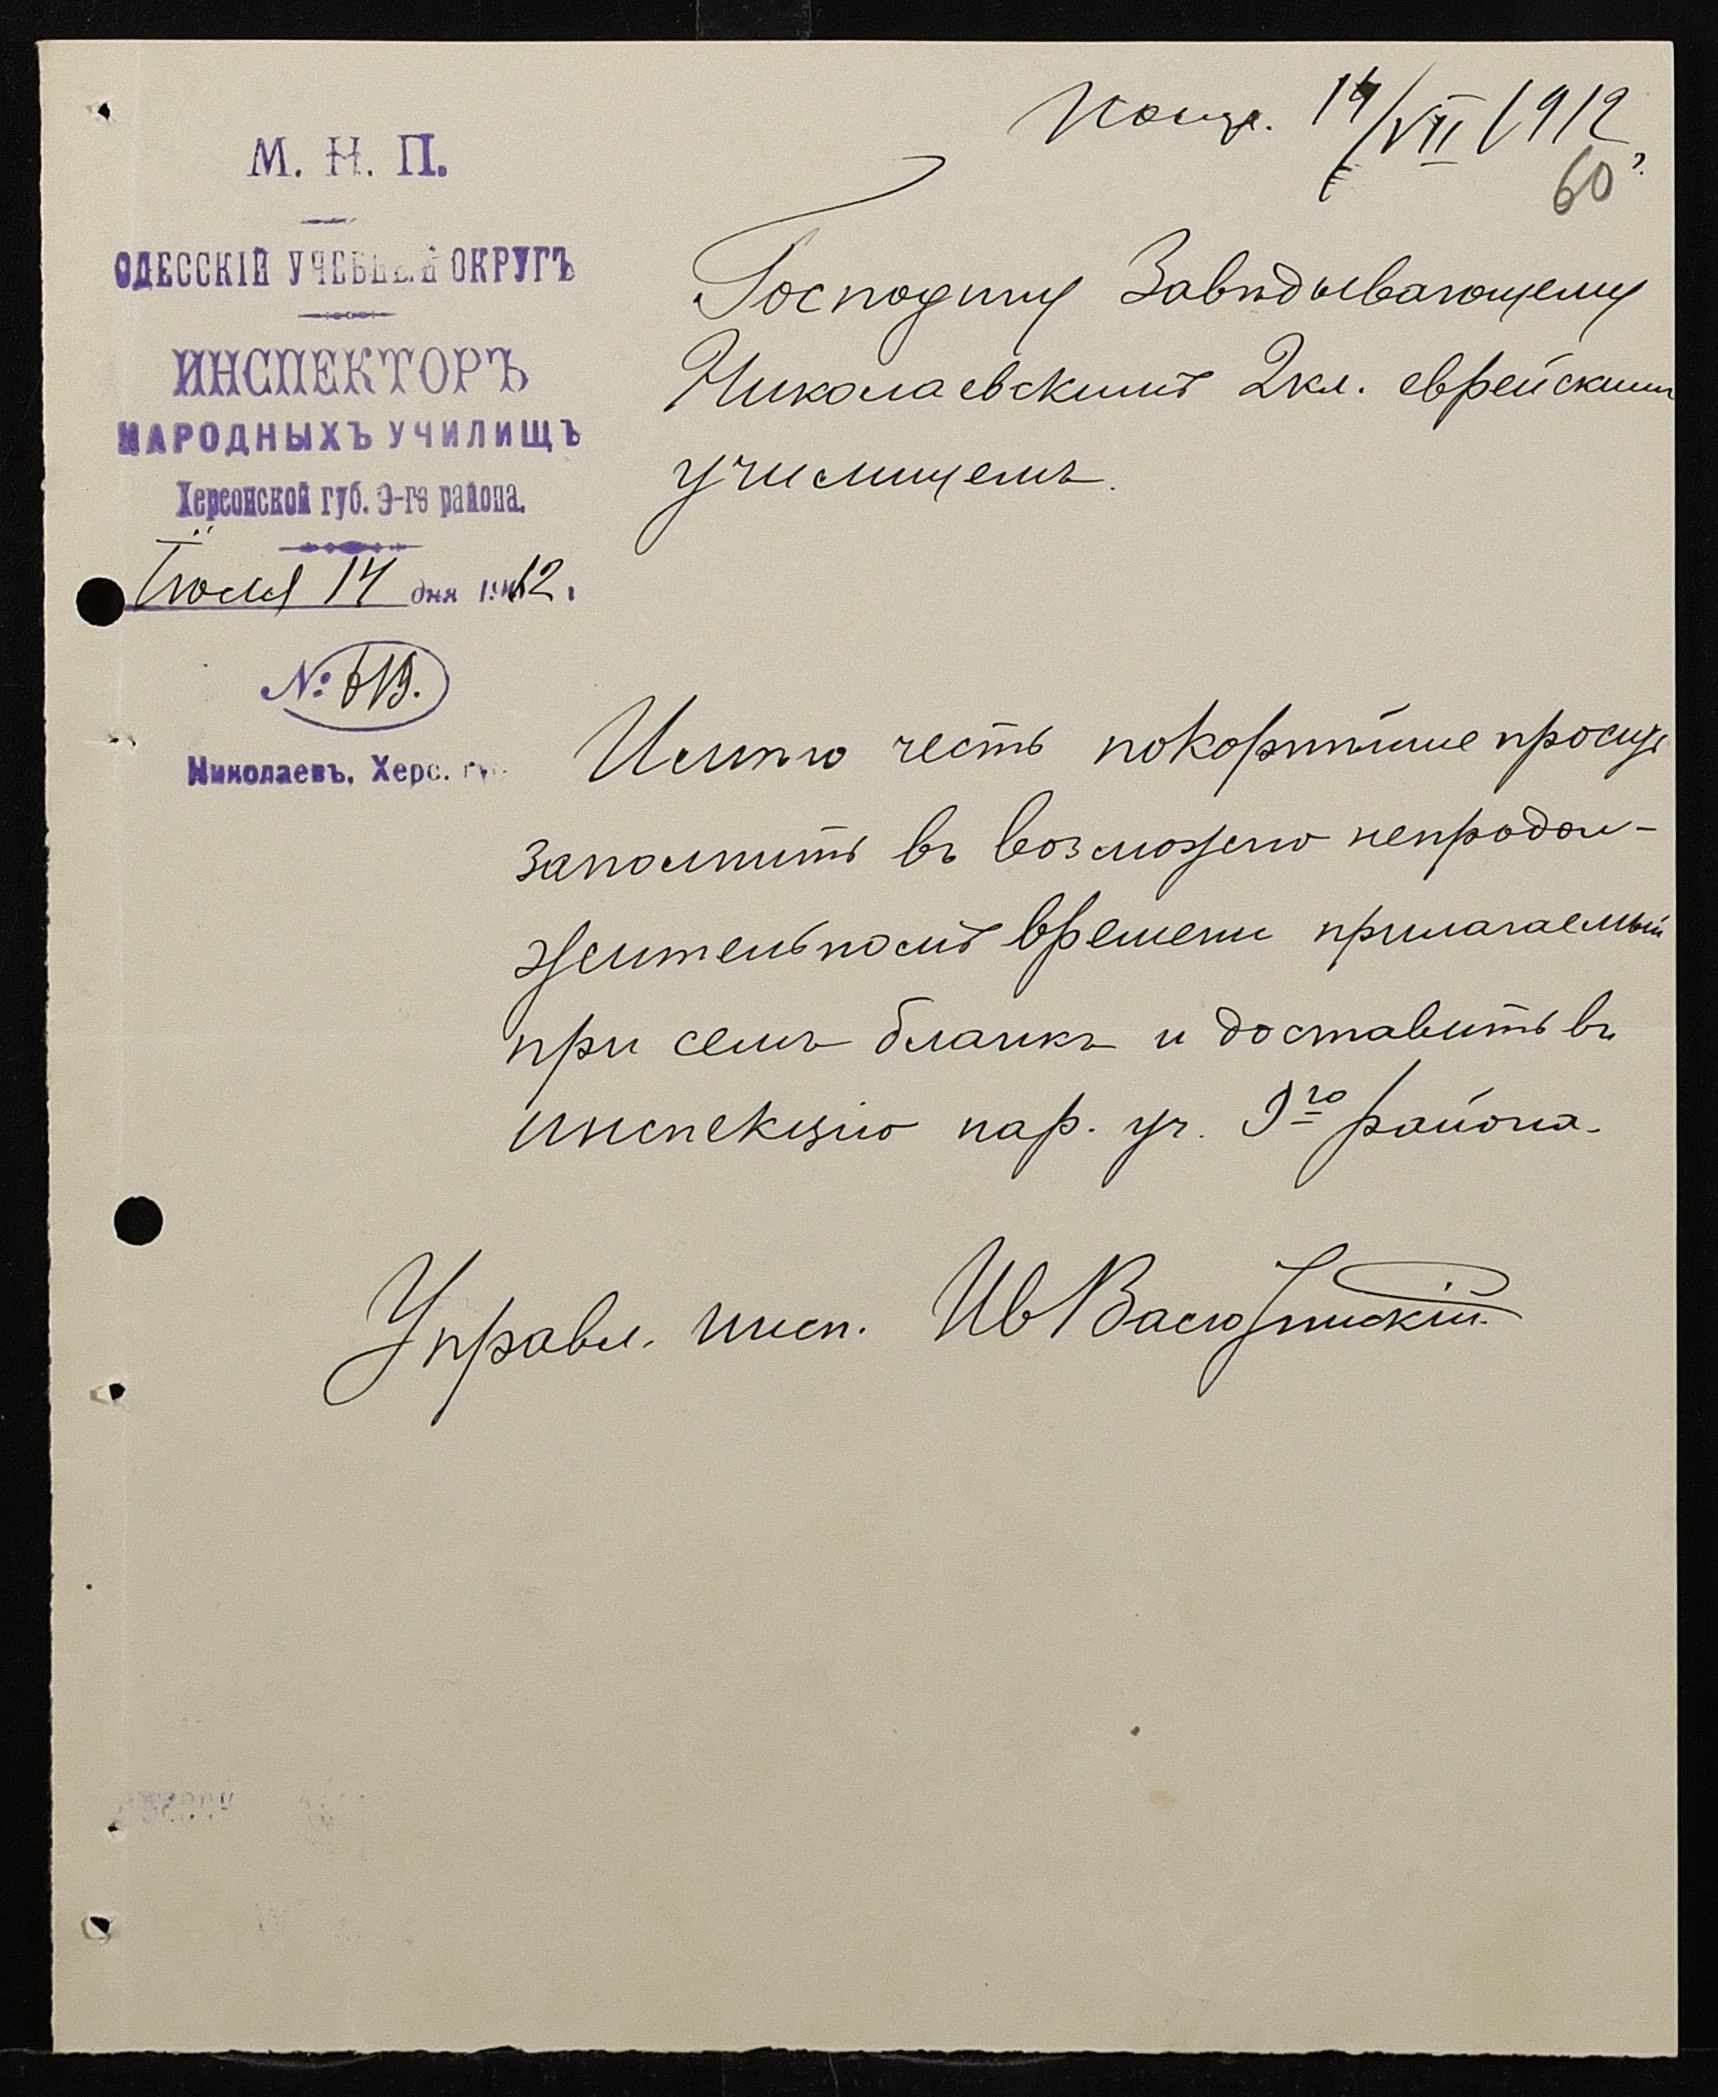 Получ. 14/VII 1912
60
М. Н. П.
ОДЕССКІЙ УЧЕБНЫЙ ОКРУГЪ
ИНСПЕКТОРЪ
НАРОДНЫХЪ УЧИЛИЩЪ
Херсонской губ. 9-го района.
Іюля 14 дня 1912 г.
№ 619.
Николаевъ, Херс. губ.
Господину Завѣдывающему
Николаевскимъ 2кл. еврейскимъ
училищемъ.
Имѣю честь покорнѣйше просить
заполнить въ возможно непродол-
жительномъ времени прилагаемый
при семъ бланкъ и доставить въ
инспекцію нар. уч. 9го района.
Управл. инсп. Ив